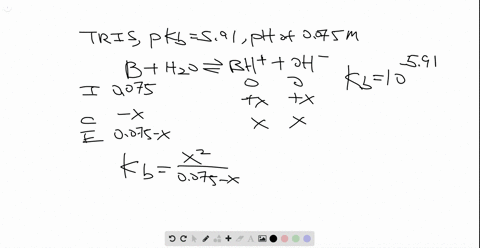 TRIS, pKb=5.91, pH of 0.075 M
B + H2O ⇌ BH+ + OH-
Kb = 10^-5.91
I 0.075 0 0
C -x +x +x
E 0.075-x x x
Kb = x^2 / 0.075-x